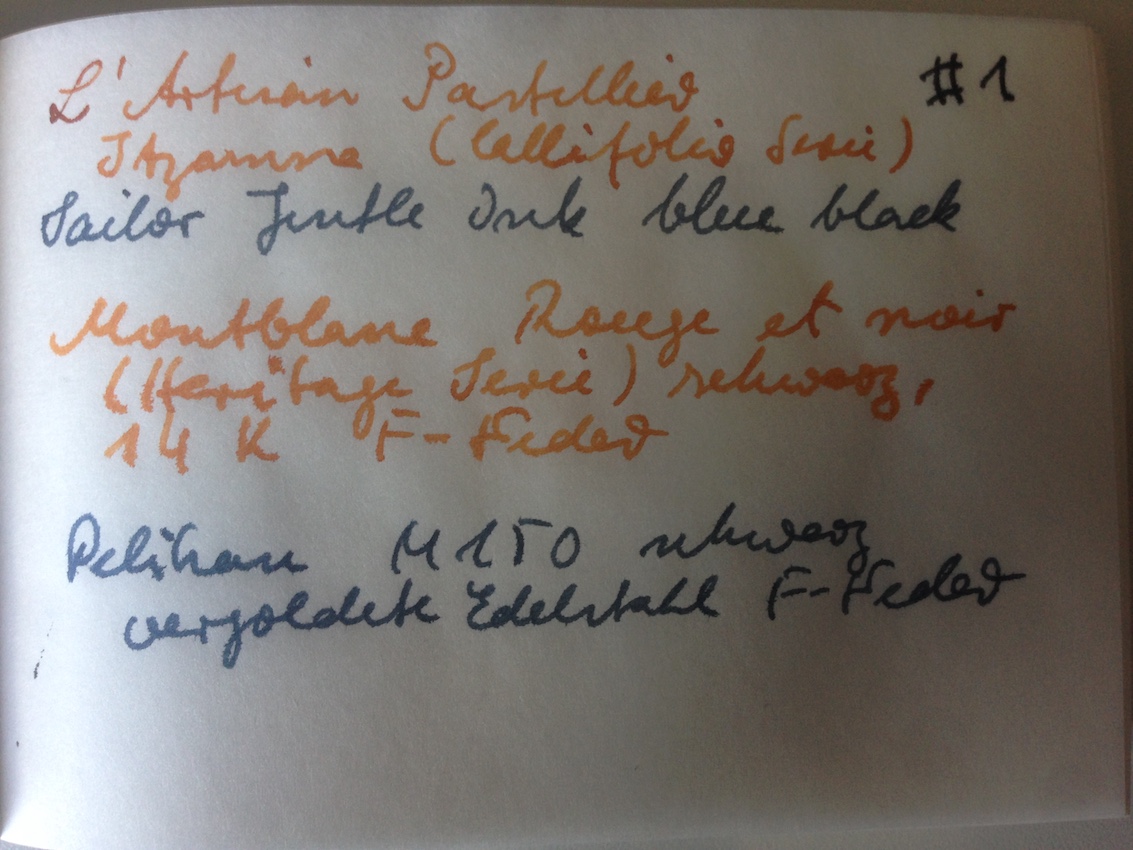 L'Artisan Pastellier #1
Itzamna (Callifolio Serie)
Sailor Jentle Ink blue black
Montblanc Rouge et noir
(Heritage Serie) schwarz,
14 K F-Feder
Pelikan M150 schwarz
vergoldete Edelstahl F-Feder